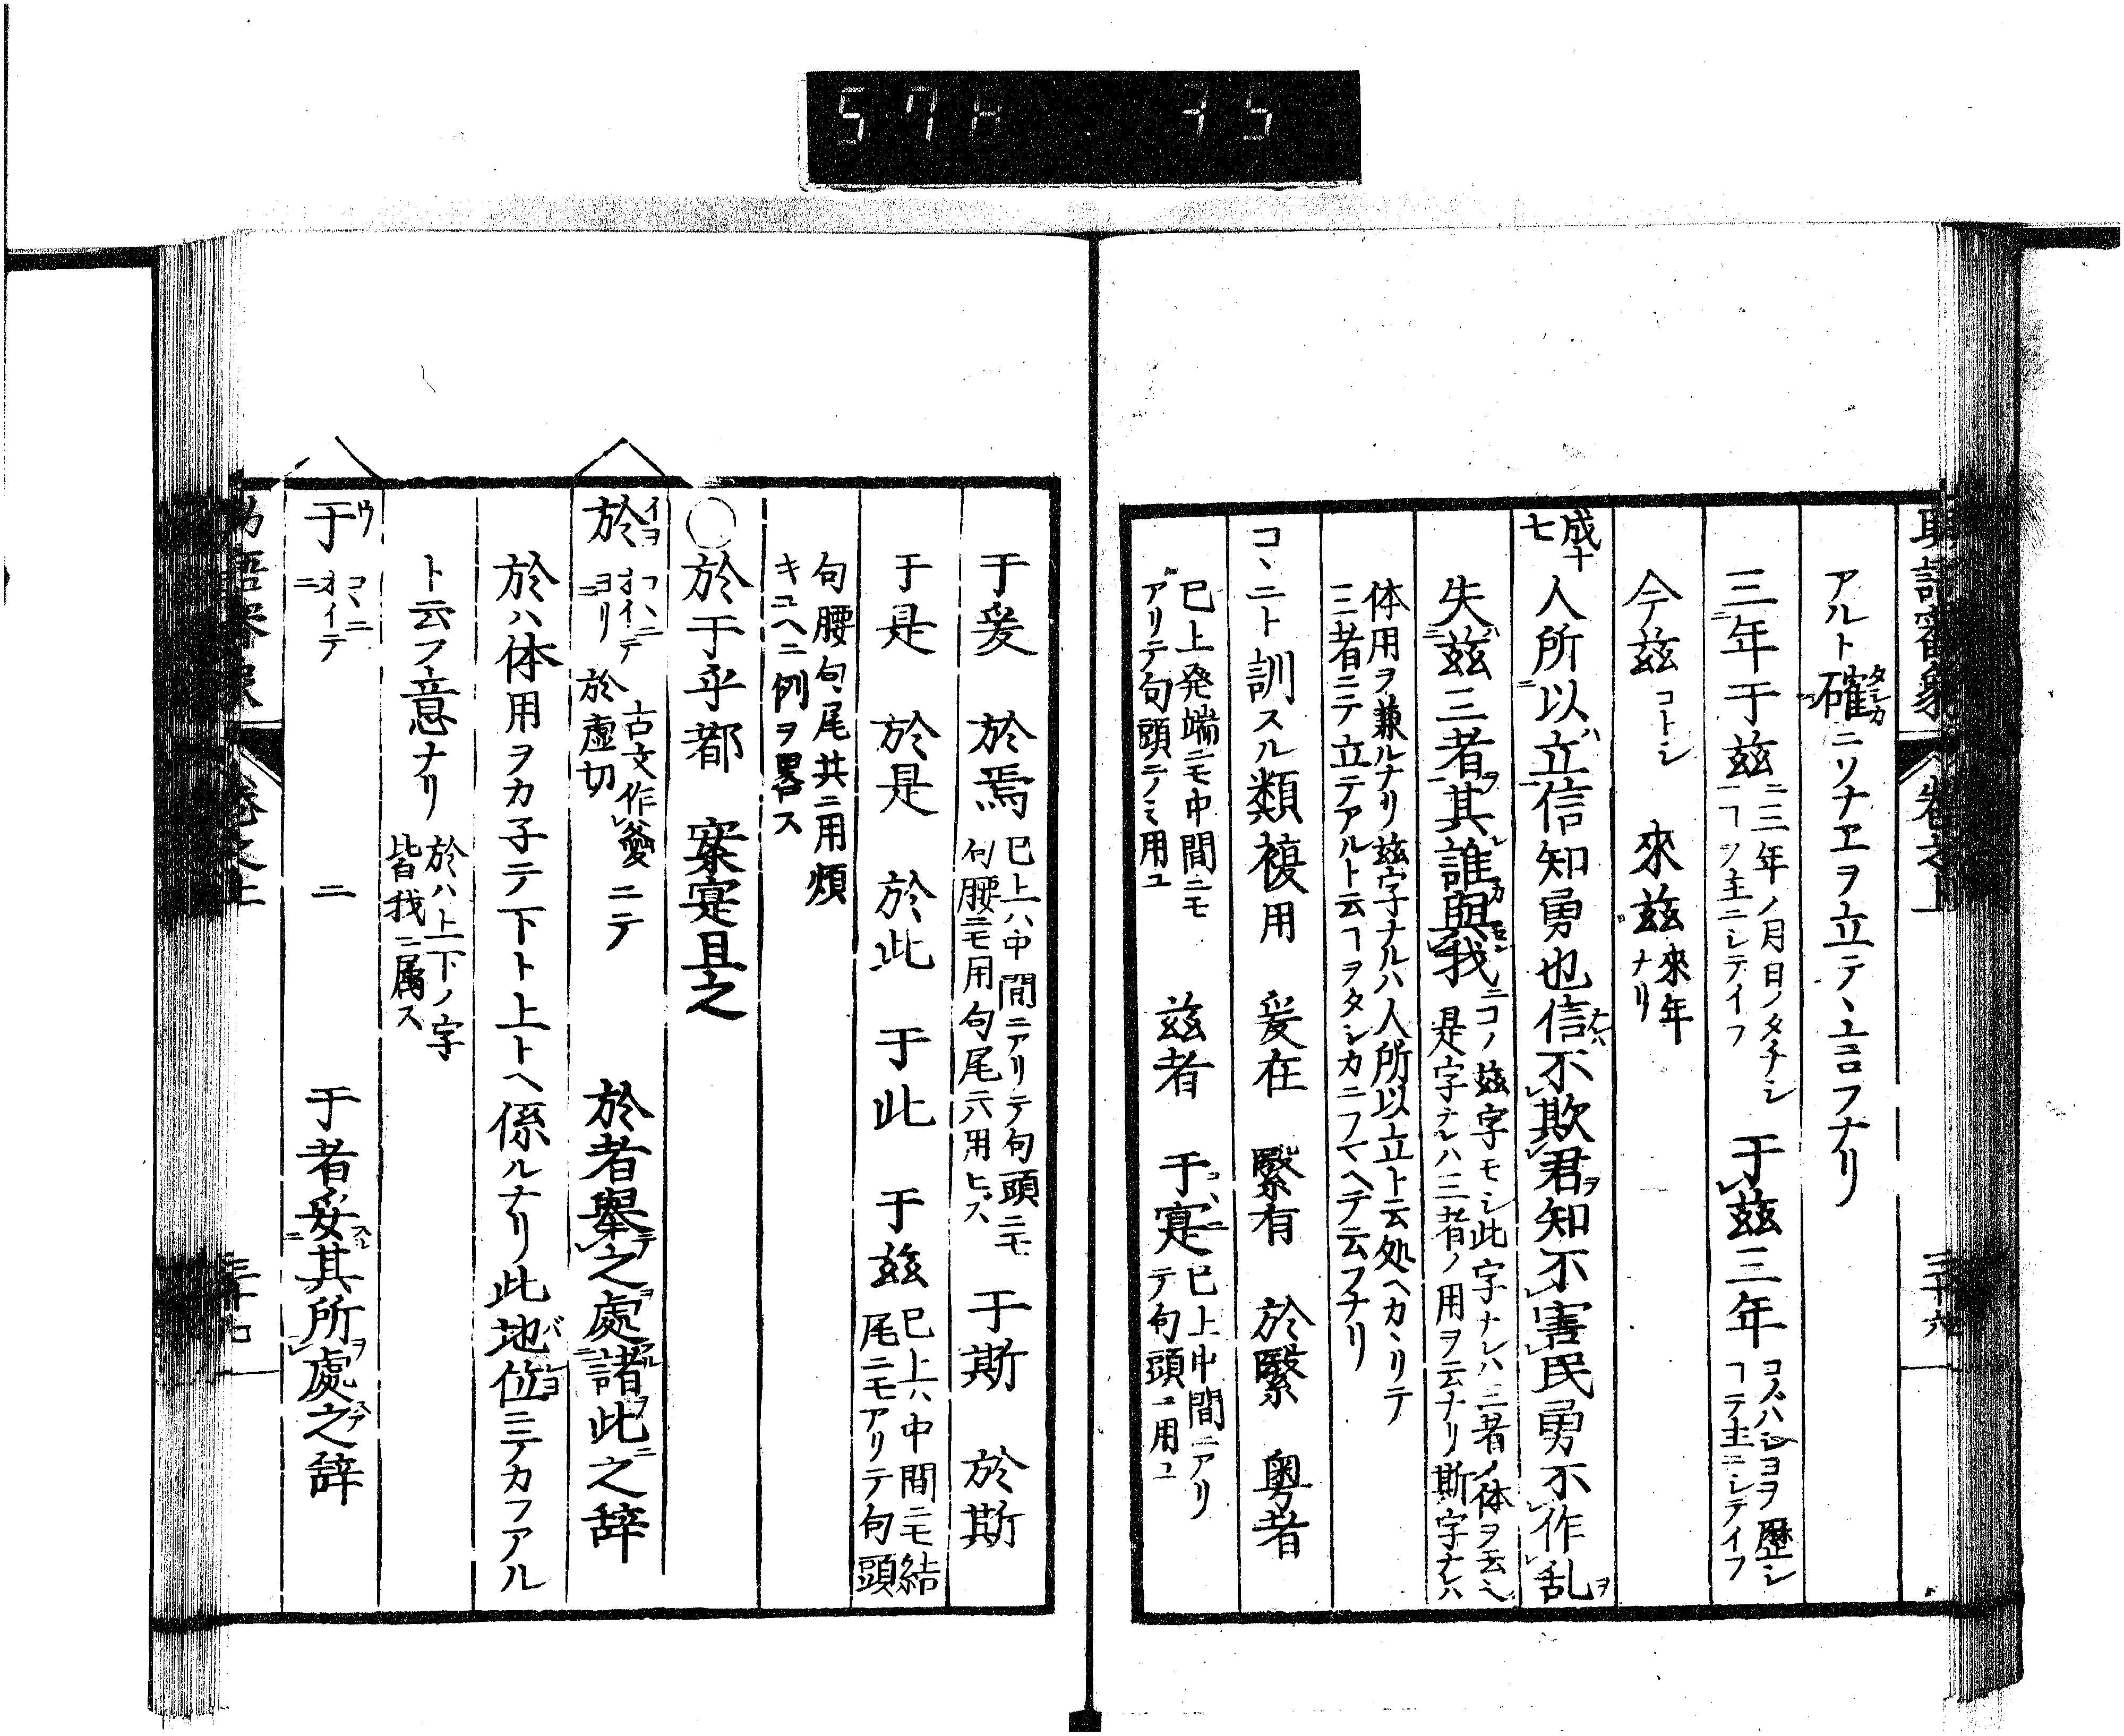 アルト確ニソナヱヲ立テヽ言フナリ
三年于茲 三年ノ月日ノタチシ
ヿヲ主ニシテイフ 于茲三年 コヽハシヨヲ歴シ
ヿテ主ニシテイフ
今茲 コトシ 來茲 來年
ナリ
成十
七 人所以立信知勇也信不欺君知不害民勇不作乱
失茲三者其誰與我 コノ茲字モシ此字ナレハ三者ノ体ヲ云ヘ
是字ナレハ三者ノ用ヲ云ナリ斯字ナレハ
体用ヲ兼ルナリ茲字ナルハ人所以立ト云処ヘカヽリテ
三者ニテ立テアルト云ヿヲタシカニフマヘテ云フナリ
コヽニト訓スル類複用 爰在 繄有 於繄 粤者
已上発端ニモ中間ニモ
アリテ句頭ニノミ用ユ 茲者 于寔 已上中間ニアリ
テ句頭ニ用ユ
卷之上
三十六
于爰 於焉 已上ハ中間ニアリテ句頭ニモ
句腰ニモ用句尾ニハ用ヒス 于斯 於斯
于是 於是 於此 于此 于茲 已上ハ中間ニモ結
尾ニモアリテ句頭
句腰句尾共ニ用煩
キユヘニ例ヲ畧ス
○於于乎都 寀寔且之
於 イヨ コヽニ
オイテ
ヨリ 古文作
於虚切 ニテ 於者舉之處諸此之辞
於ハ体用ヲカ子テ下ト上トヘ係ルナリ此地位ニテカフアル
ト云フ意ナリ 於ハ上下ノ字
皆我ニ属ス
于 ウ コヽニ
オイテ
ニ ニ 于者妥其所處之辞
三十七